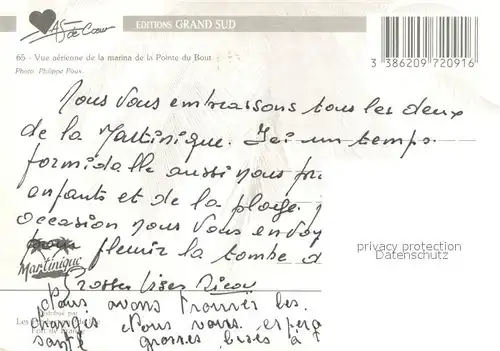 As de Cœur
EDITIONS GRAND SUD
65 - Vue aérienne de la marina de la Pointe du Bout
Photo Philippe Poux
3 386209 720916
Nous vous embrassons tous les deux
de la Martinique. Ici un temps
formidable aussi nous
enfants et de la plage.
occasion nous vous
fleurir la tombe d
privacy protection
Datenschutz
Martinique
Grosses bises
Nous avons trouver les
Distribué par
changés Nous vous
Fort de France
santé grosses bises à